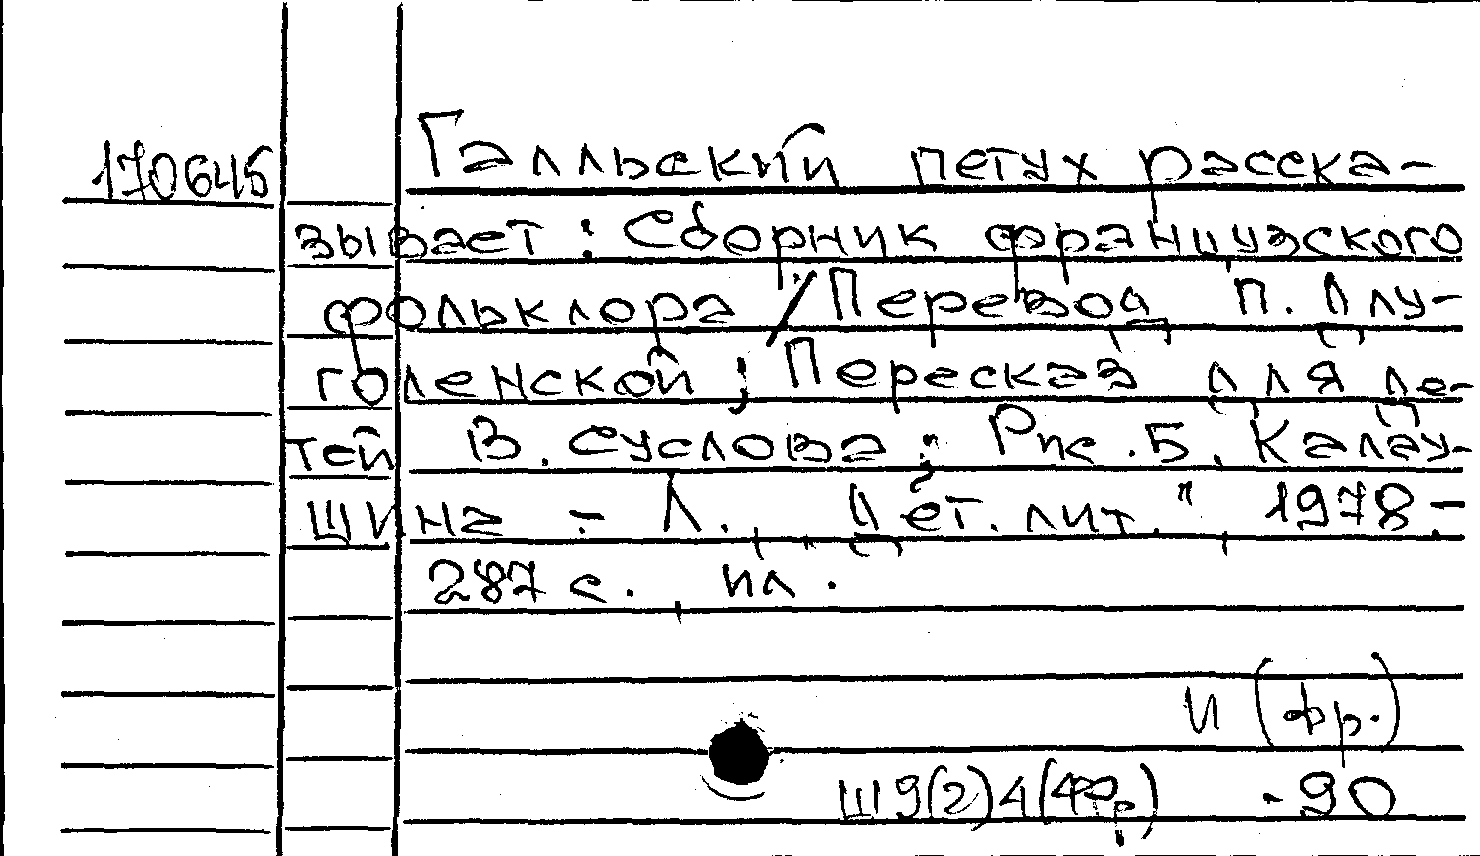 170645 Галльский петух расска-
зывает : Сборник французского
фольклора / Перевод П. Длу-
голенской ; Пересказ для де-
тей В. Суслова ; Рис. Б. Калау-
шина - Л., "Дет. лит.", 1978.-
287 с., ил.
И (фр.)
Ш9(2)4(4Фр) -90